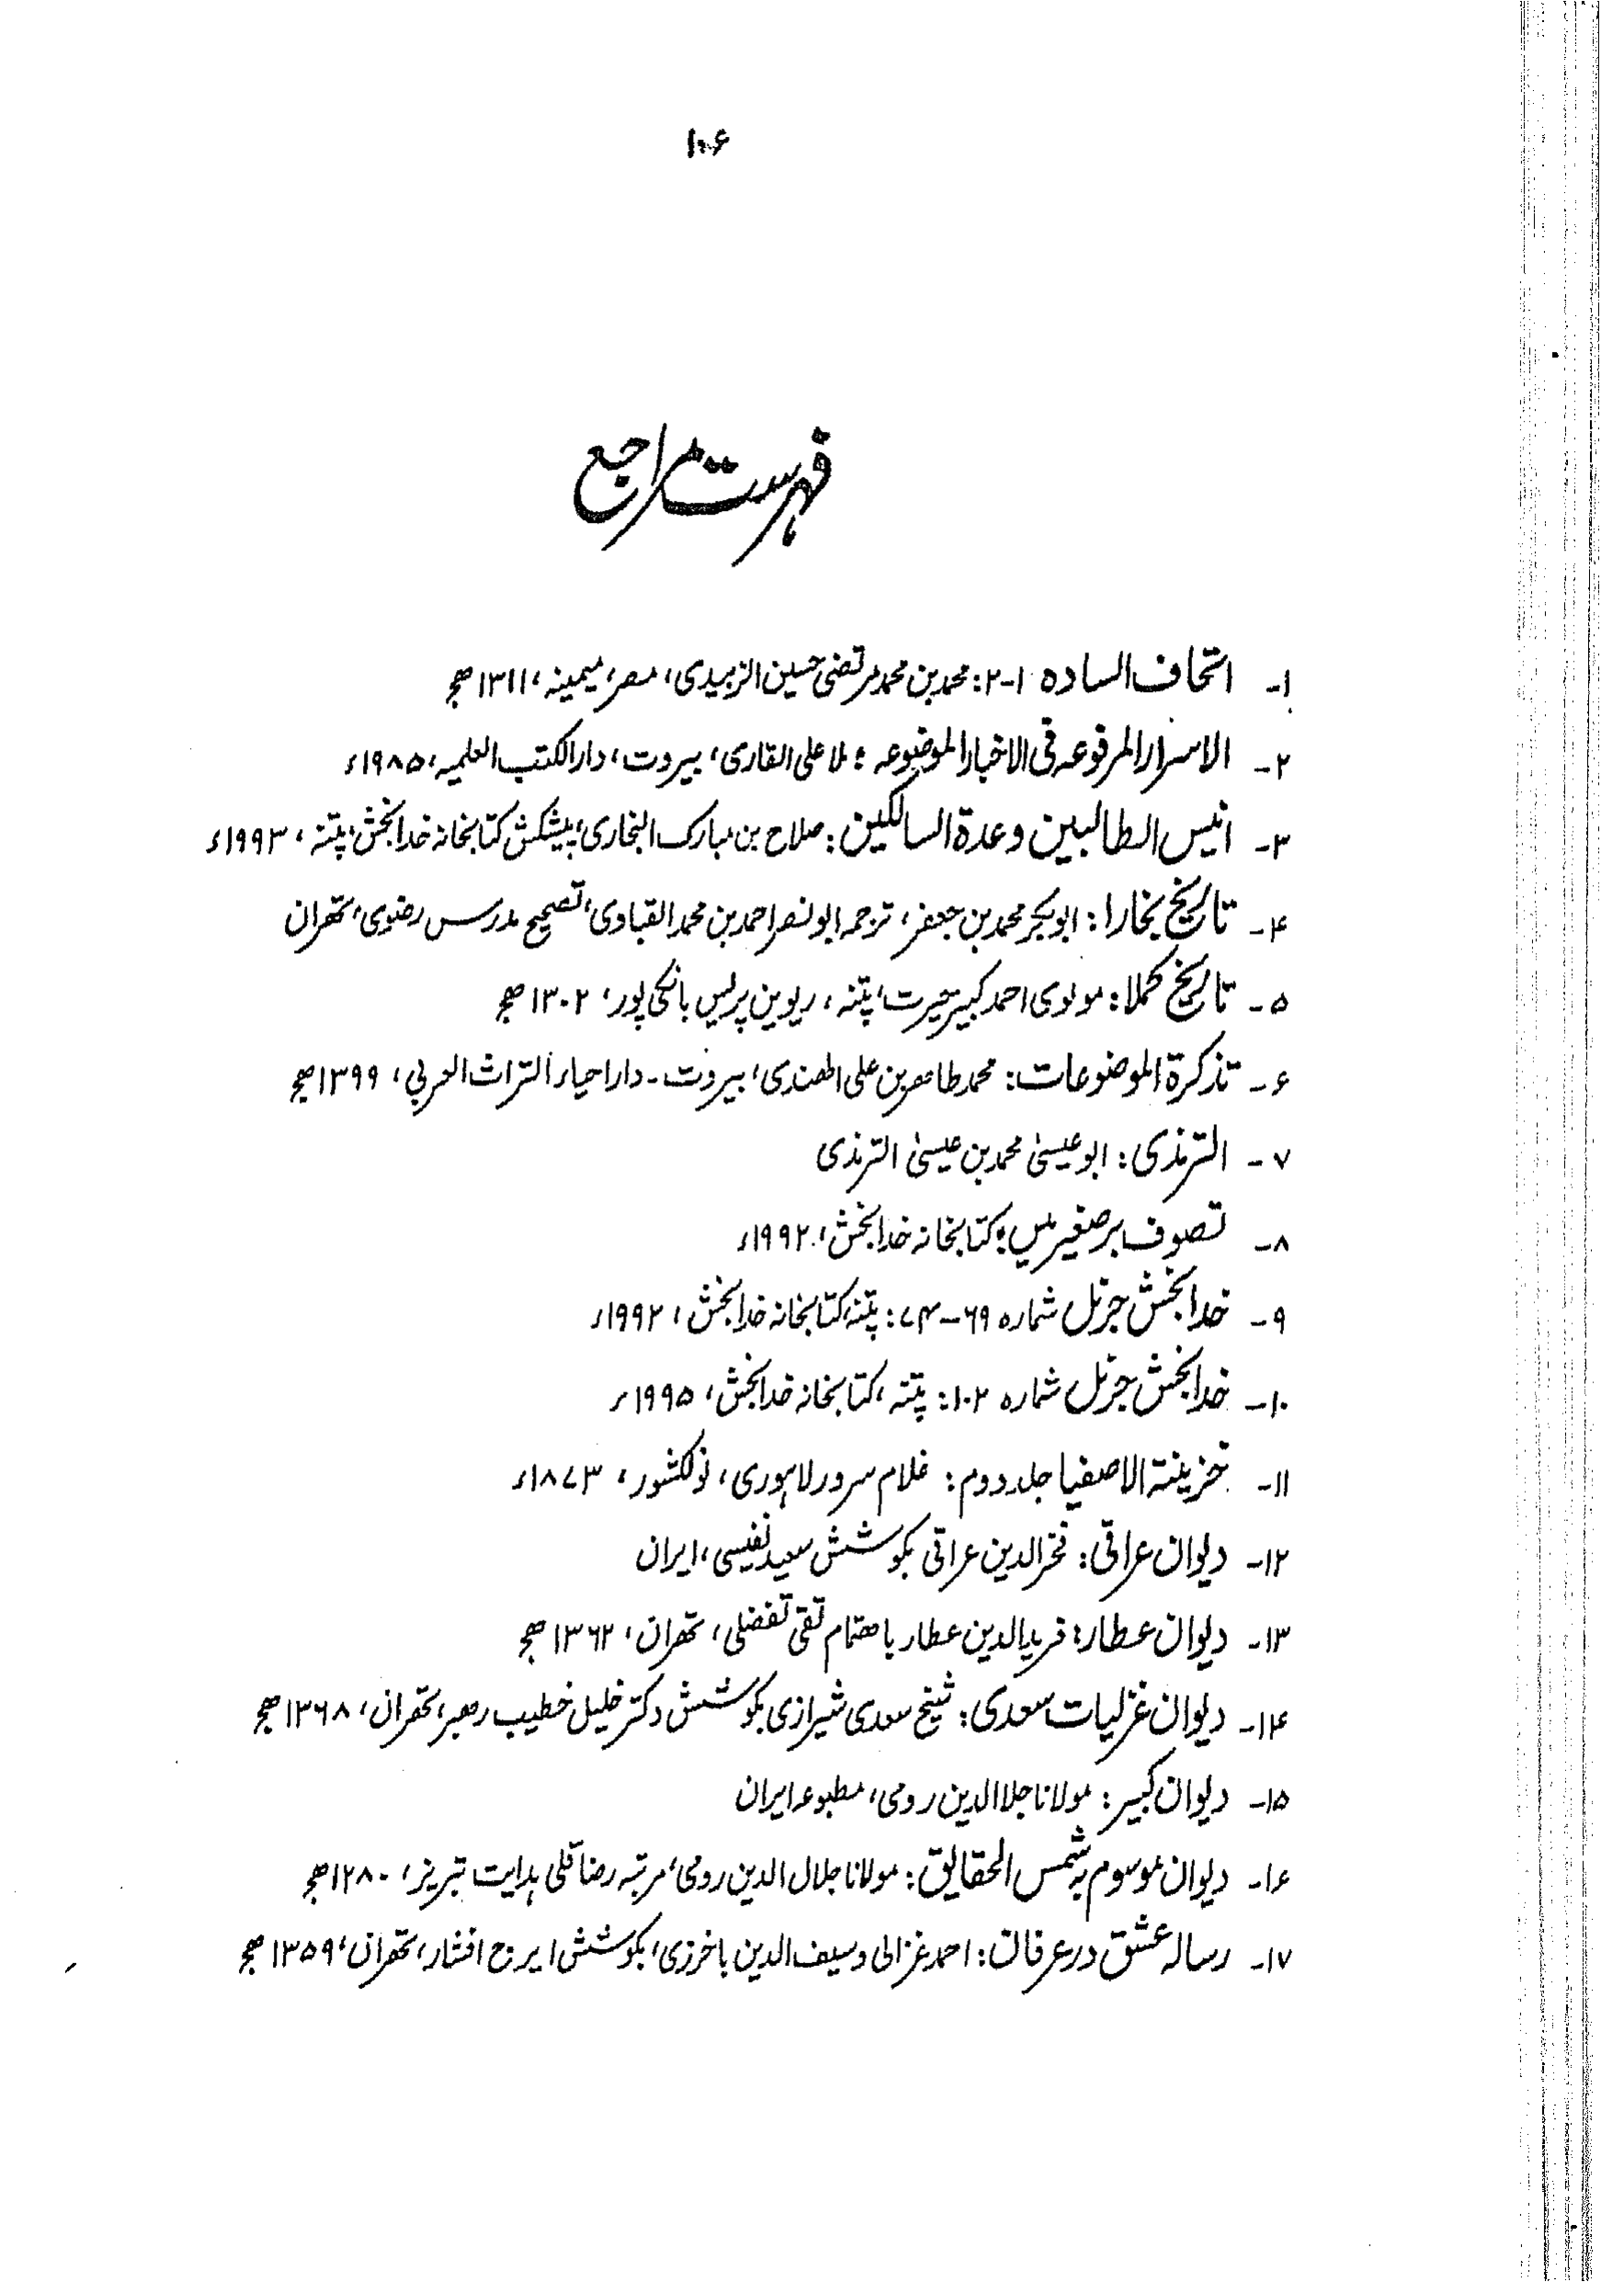 ۱۰۶
فہرست مراجع
۱- اتحاف السادہ ۱-۲: محمد بن محمد مرتضیٰ حسین الزبیدی، مصر، میمینہ، ۱۳۱۱ھج
۲- الاسرار المرفوعہ فی الاخبار الموضوعہ: ملا علی القاری، بیروت، دار الکتب العلمیہ، ۱۹۸۵ء
۳- انیس الطالبین وعدۃ السالکین: صلاح بن مبارک البخاری، پیشکش کتابخانہ خدا بخش، پتنہ، ۱۹۹۳ء
۴- تاریخ بخارا: ابوبکر محمد بن جعفر، ترجمہ ابو نصر احمد بن محمد القباوی، تصحیح مدرس رضوی، تھران
۵- تاریخ کملا: مولوی احمد کبیر حیرت، پتنہ، ریوین پریس بانکی پور، ۱۳۰۲ھج
۶- تذکرۃ الموضوعات: محمد طاھر بن علی الھندی، بیروت- دار احیاء التراث العربی، ۱۳۹۹ھج
۷- الترمذی: ابو عیسیٰ محمد بن عیسیٰ الترمذی
۸- تصوف برصغیر میں: کتابخانہ خدا بخش، ۱۹۹۲ء
۹- خدا بخش جرنل شمارہ ۶۹-۷۴: پتنہ کتابخانہ خدا بخش، ۱۹۹۲ء
۱۰- خدا بخش جرنل شمارہ ۱۰۲: پتنہ، کتابخانہ خدا بخش، ۱۹۹۵ء
۱۱- خزینۃ الاصفیا جلد دوم: غلام سرور لاہوری، نولکشور، ۱۸۷۳ء
۱۲- دیوان عراقی: فخر الدین عراقی بکوشش سعید نفیسی، ایران
۱۳- دیوان عطار: فرید الدین عطار باھتمام تقی تفضلی، تھران، ۱۳۶۲ھج
۱۴- دیوان غزلیات سعدی: شیخ سعدی شیرازی بکوشش دکتر خلیل خطیب رھبر، تھران، ۱۳۶۸ھج
۱۵- دیوان کبیر: مولانا جلاالدین رومی، مطبوعہ ایران
۱۶- دیوان موسوم بہ شمس الحقایق: مولانا جلال الدین رومی، مرتبہ رضا قلی ہدایت تبریز، ۱۲۸۰ھج
۱۷- رسالہ عشق در عرفان: احمد غزالی و سیف الدین باخرزی، بکوشش ایرج افشار، تھران، ۱۳۵۹ھج